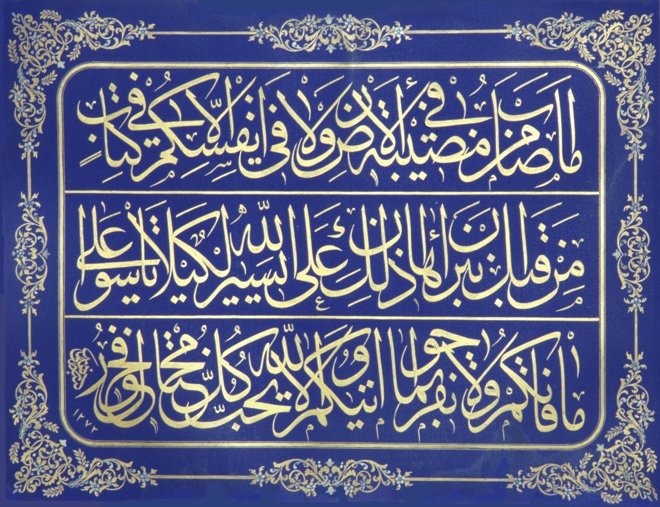 ما اصاب من مصيبة في الارض ولا في انفسكم الا في كتاب
من قبل ان نبراها ان ذلك على الله يسير لكيلا تاسوا على
ما فاتكم ولا تفرحوا بما اتيكم والله لا يحب كل مختال فخور
١٣٧٢